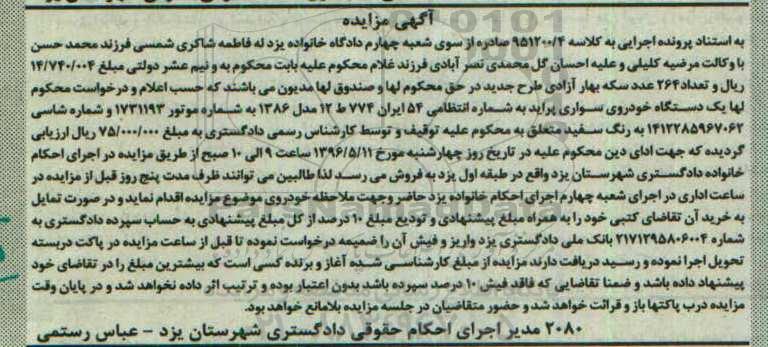 آگهی مزایده
به استناد پرونده اجرایی به کلاسه ۹۵۱۲۰۰/۴ صادره از سوی شعبه چهارم دادگاه خانواده یزد له فاطمه شاکری شمسی فرزند محمد حسن
با وکالت مرضیه کلیلی و علیه احسان گل محمدی نصر آبادی فرزند غلام محکوم علیه بابت محکوم به و نیم عشر دولتی مبلغ ۱۴/۷۴۰/۰۰۴
ریال و تعداد ۲۶۴ عدد سکه بهار آزادی طرح جدید در حق محکوم لها و صندوق لها مدیون می باشند که حسب اعلام و درخواست محکوم
لها یک دستگاه خودروی سواری پراید به شماره انتظامی ۵۴ ایران ۷۷۴ ط ۱۲ مدل ۱۳۸۶ به شماره موتور ۱۷۳۱۱۹۳ و شماره شاسی
۱۴۱۲۲۸۵۹۶۷۰۶۲ به رنگ سفید متعلق به محکوم علیه توقیف و توسط کارشناس رسمی دادگستری به مبلغ ۷۵/۰۰۰/۰۰۰ ریال ارزیابی
گردیده که جهت ادای دین محکوم علیه در تاریخ روز چهارشنبه مورخ ۱۳۹۶/۵/۱۱ ساعت ۹ الی ۱۰ صبح از طریق مزایده در اجرای احکام
خانواده دادگستری شهرستان یزد واقع در طبقه اول یزد به فروش می رسد لذا طالبین می توانند ظرف مدت پنج روز قبل از مزایده در
ساعت اداری در اجرای شعبه چهارم اجرای احکام خانواده یزد حاضر وجهت ملاحظه خودروی موضوع مزایده اقدام نماید و در صورت تمایل
به خرید آن تقاضای کتبی خود را به همراه مبلغ پیشنهادی و تودیع مبلغ ۱۰ درصد از کل مبلغ پیشنهادی به حساب سپرده دادگستری به
شماره ۲۱۷۱۲۹۵۸۰۶۰۰۴ بانک ملی دادگستری یزد واریز و فیش آن را ضمیمه درخواست نموده تا قبل از ساعت مزایده در پاکت دربسته
تحویل اجرا نموده و رسید دریافت دارند مزایده از مبلغ کارشناسی شده آغاز و برنده کسی است که بیشترین مبلغ را در تقاضای خود
پیشنهاد داده باشد و ضمنا تقاضایی که فاقد فیش ۱۰ درصد سپرده باشد بدون اعتبار بوده و ترتیب اثر داده نخواهد شد و در پایان وقت
مزایده درب پاکتها باز و قرائت خواهد شد و حضور متقاضیان در جلسه مزایده بلامانع خواهد بود.
۲۰۸۰ مدیر اجرای احکام حقوقی دادگستری شهرستان یزد - عباس رستمی